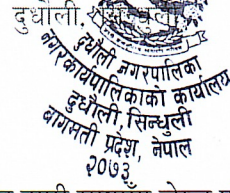 दुधौली, सिन्धुली
दुधौली नगरपालिका
नगरकार्यपालिकाको कार्यालय
दुधौली, सिन्धुली
बागमती प्रदेश, नेपाल
२०७३